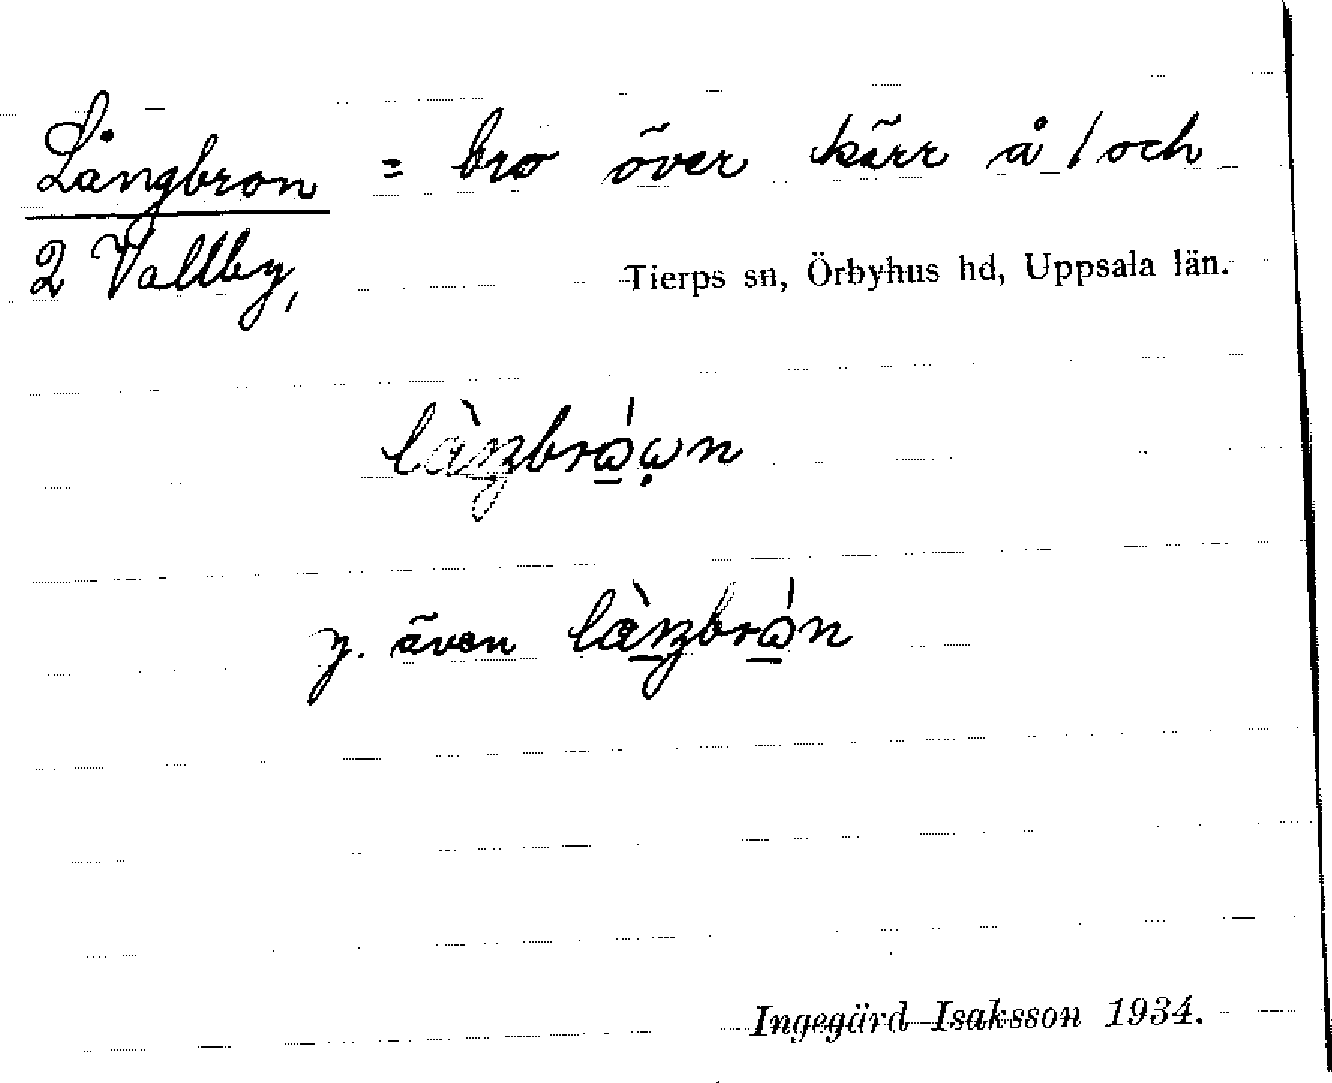 Långbron = bro över kärr å 1 och
2 Vallby, Tierps sn, Örbyhus hd, Uppsala län.
y. även
Ingegärd Isaksson 1934.